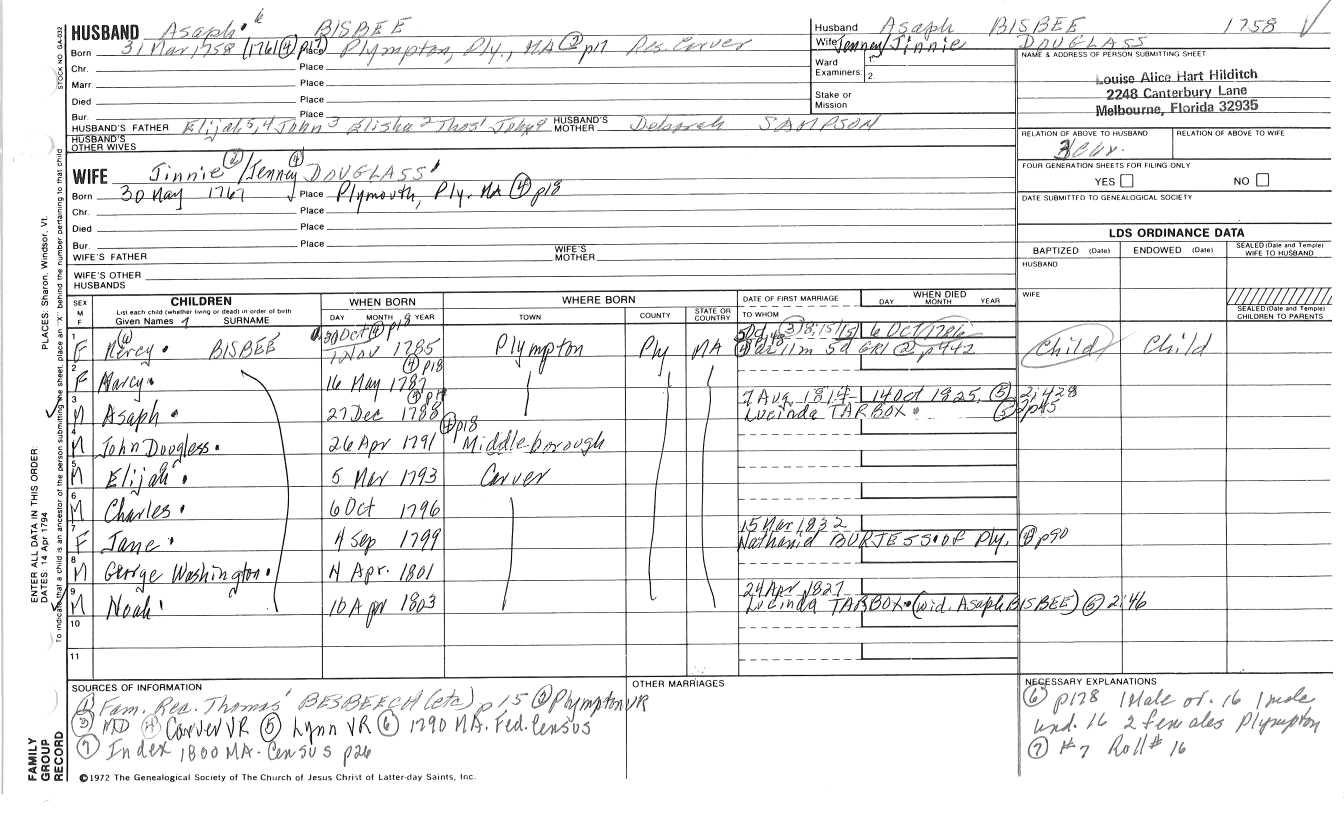 STOCK NO. GA-032
HUSBAND Asaph 6 BISBEE
Born 31 Mar 1758 (1761 (4) p17) Place Plympton, Ply., MA (2) p17 Res. Carver
Chr. Place
Marr. Place
Died Place
Bur. Place
HUSBAND'S FATHER Elijah 5, 4 John 3 Elisha 2 Thos 1 HUSBAND'S MOTHER Deborah SAMPSON
HUSBAND'S OTHER WIVES
Husband Asaph BISBEE 1758 √
Wife Jenney/Jinnie DOUGLASS
Ward
Examiners: 1.
2.
Stake or
Mission
NAME & ADDRESS OF PERSON SUBMITTING SHEET
Louise Alice Hart Hilditch
2248 Canterbury Lane
Melbourne, Florida 32935
RELATION OF ABOVE TO HUSBAND RELATION OF ABOVE TO WIFE
FOUR GENERATION SHEETS FOR FILING ONLY
YES NO
DATE SUBMITTED TO GENEALOGICAL SOCIETY
WIFE Jinnie (2) / Jenney (4) DOUGLASS
Born 30 May 1767 Place Plymouth, Ply. MA (4) p18
Chr. Place
Died Place
Bur. Place
WIFE'S FATHER WIFE'S MOTHER
WIFE'S OTHER HUSBANDS
LDS ORDINANCE DATA
BAPTIZED (Date) ENDOWED (Date) SEALED (Date and Temple) WIFE TO HUSBAND
HUSBAND
WIFE
SEALED (Date and Temple) CHILDREN TO PARENTS
SEX M F
CHILDREN
List each child (whether living or dead) in order of birth
Given Names SURNAME
WHEN BORN
DAY MONTH YEAR
WHERE BORN
TOWN COUNTY STATE OR COUNTRY
DATE OF FIRST MARRIAGE
TO WHOM
WHEN DIED
DAY MONTH YEAR
1 F Mercy BISBEE 30 Oct (4) p18 1 Nov 1785 Plympton Ply MA 6 OCT 1786 ae 11m 5d GR1 (2) p442 Child Child
2 F Marcy 16 May 1787 (4) p18
3 M Asaph 27 Dec 1788 (4) p18 7 Aug 1814 14 Oct 1825, (5) 2:428
Lucinda TARBOX (5) 2p45
4 M John Dougless 26 Apr 1791 (4) p18 Middleborough
5 M Elijah 5 Mar 1793 Carver
6 M Charles 6 Oct 1796
7 F Jane 4 Sep 1799 15 Mar 1832
Nathaniel BURJESS of Ply. (4) p90
8 M George Washington 4 Apr. 1801
9 M Noah 10 Apr 1803 24 Apr 1827
Lucinda TARBOX (wid. Asaph BISBEE) (5) 2:46
10
11
SOURCES OF INFORMATION
(1) Fam. Rea. Thomas' BESBEECH (etc) p15 (2) Plympton VR
(3) MD (4) Carver VR (5) Lynn VR (6) 1790 MA. Fed. Census
(7) Index 1800 MA. Census p26
OTHER MARRIAGES
NECESSARY EXPLANATIONS
(6) p178 1 Male or. 16 1 male
und. 16 2 females Plympton
(7) #7 Roll # 16
©1972 The Genealogical Society of The Church of Jesus Christ of Latter-day Saints, Inc.
FAMILY
GROUP
RECORD
ENTER ALL DATA IN THIS ORDER
DATES: 14 Apr 1794
PLACES: Sharon, Windsor, Vt.
To indicate that a child is an ancestor of the person submitting the sheet, place an "X" behind the number pertaining to that child